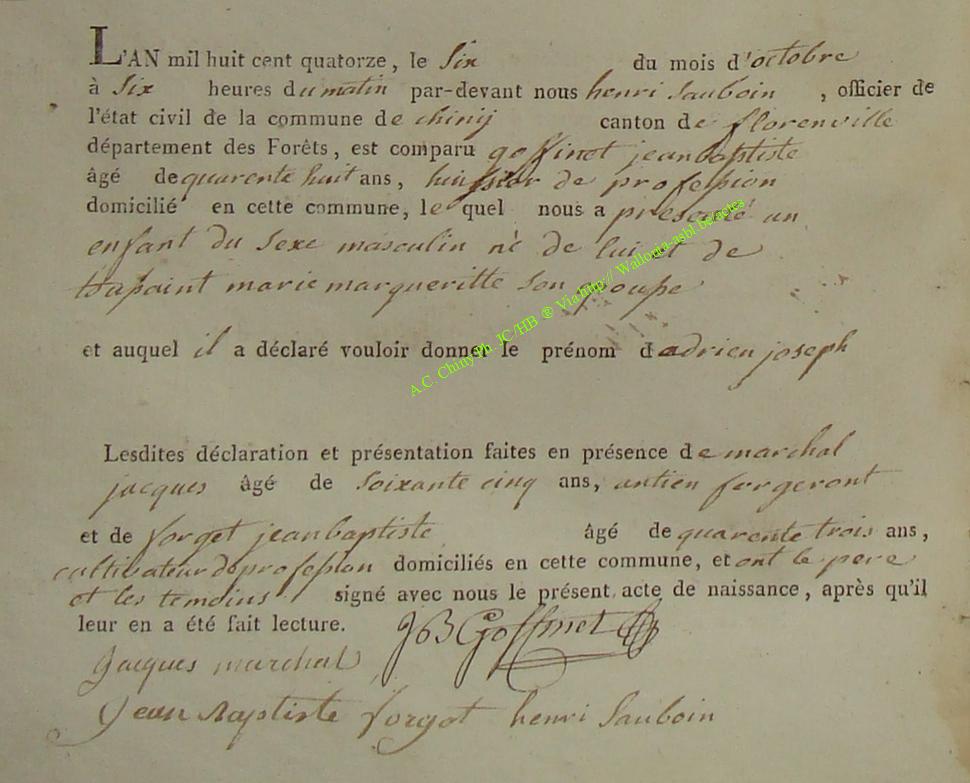 L'AN mil huit cent quatorze, le Six du mois d'octobre
à Six heures du matin par-devant nous henri Sauboin, officier de
l'état civil de la commune de chinij canton de florenville
département des Forêts, est comparu goffinet jeanbaptiste
âgé de quarente huit ans, huissier de profession
domicilié en cette commune, le quel nous a presenté un
enfant du Sexe masculin né de lui et de
marie margueritte Son Epouse
et auquel il a déclaré vouloir donner le prénom de adrien joseph
Lesdites déclaration et présentation faites en présence de marchal
jacques âgé de Soixante cinq ans, antien forgeront
et de forget jeanbaptiste âgé de quarente trois ans,
cultivateur de profession domiciliés en cette commune, et ont le pere
et les temoins signé avec nous le présent acte de naissance, après qu'il
leur en a été fait lecture. JB Goffinet
Jacques marchal
Jean Baptiste forget henri Sauboin
A.C. Chiny Ph. JC/HB ® Via http:// Wallonia-asbl.be/actes